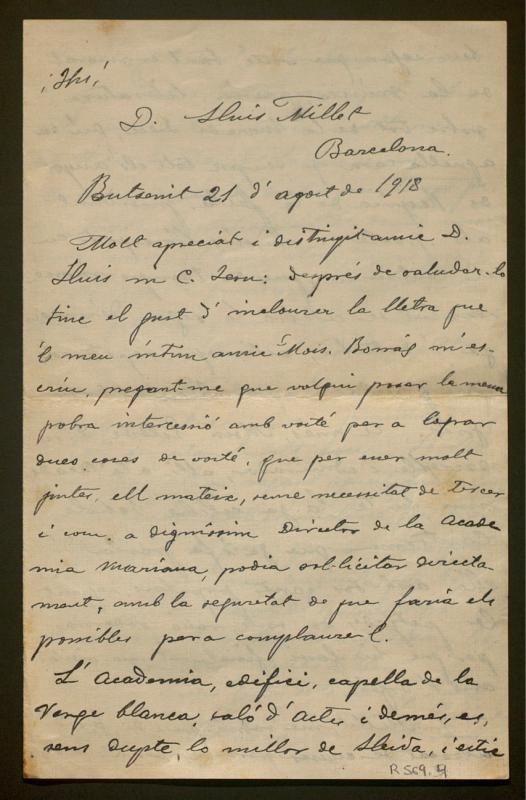 ¡Jhs!
D. Lluis Millet
Barcelona.
Butsenit 21 d'agost de 1918
Molt apreciat i distingit amic D.
Lluis en C. Jesu: després de saludar-lo
tinc el gust d'inclourer la lletra que
'l meu íntim amic Mois. Borrás m'es-
criu, pregant-me que volgui posar la meua
pobra intercessió amb vosté per a lograr
dues coses de vosté, que per esser molt
justes, ell mateix, sense necessitat de tercer
i com a digníssim Director de la Acade
mia Mariana, podia sol·licitar directa-
ment, amb la seguretat de que faria els
possibles pera complaurer l.
L'Academia, edifici, capella de la
Verge blanca, saló d'Actes i demés, es,
sens dupte, lo millor de Lleida, i estic
R 569.4